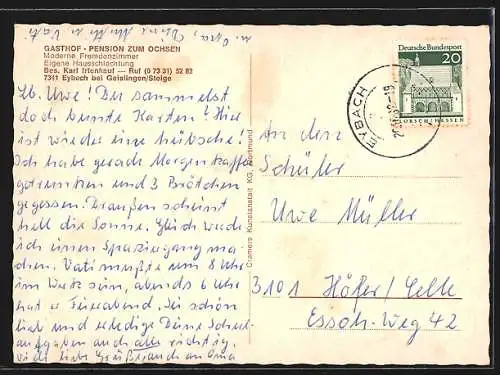 u. Opa, Deine Mutti u. Vati
GASTHOF - PENSION ZUM OCHSEN
Moderne Fremdenzimmer
Eigene Hausschlachtung
Bes. Karl Irtenkauf — Ruf (0 73 31) 52 82
7341 Eybach bei Geislingen/Steige
Lb. Uwe! Du sammelst
doch bunte Karten! Hier
ist wieder eine hübsche.
Ich habe gerade Morgenkaffee
getrunken und 3 Brötchen
gegessen. Draußen scheint
hell die Sonne. Gleich werde
ich einen Spaziergang ma-
chen. Vati mußte um 8 Uhr
im Werk sein, abends 6 Uhr
hat er Feierabend. Sei schön
lieb und erledige Deine Schul-
aufgaben auch alle richtig.
viele liebe Grüße, auch an Oma
Cramers Kunstanstalt KG, Dortmund
Deutsche Bundespost
20
LORSCH/HESSEN
EYBACH
An den
Schüler
Uwe Müller
3101 Höfer/Celle
Essoh-Weg 42